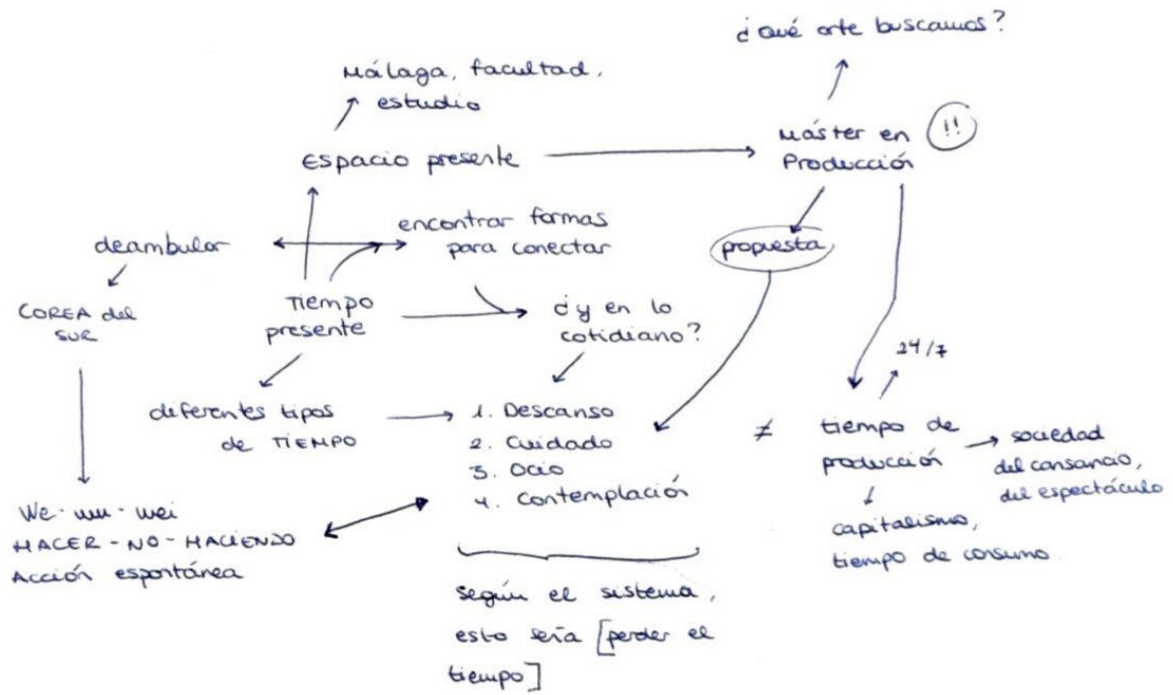 ¿Qué arte buscamos?
Málaga, facultad,
estudio
Espacio presente
Máster en
Producción
!!
deambular
encontrar formas
para conectar
propuesta
COREA del
SUR
Tiempo
presente
¿y en lo
cotidiano?
24/7
diferentes tipos
de TIEMPO
1. Descanso
2. Cuidado
3. Ocio
4. Contemplación
≠
tiempo de
producción
sociedad
del cansancio,
del espectáculo
capitalismo,
tiempo de consumo
We-wu-wei
HACER-NO-HACIENDO
Acción espontánea
según el sistema,
esto sería [perder el
tiempo]